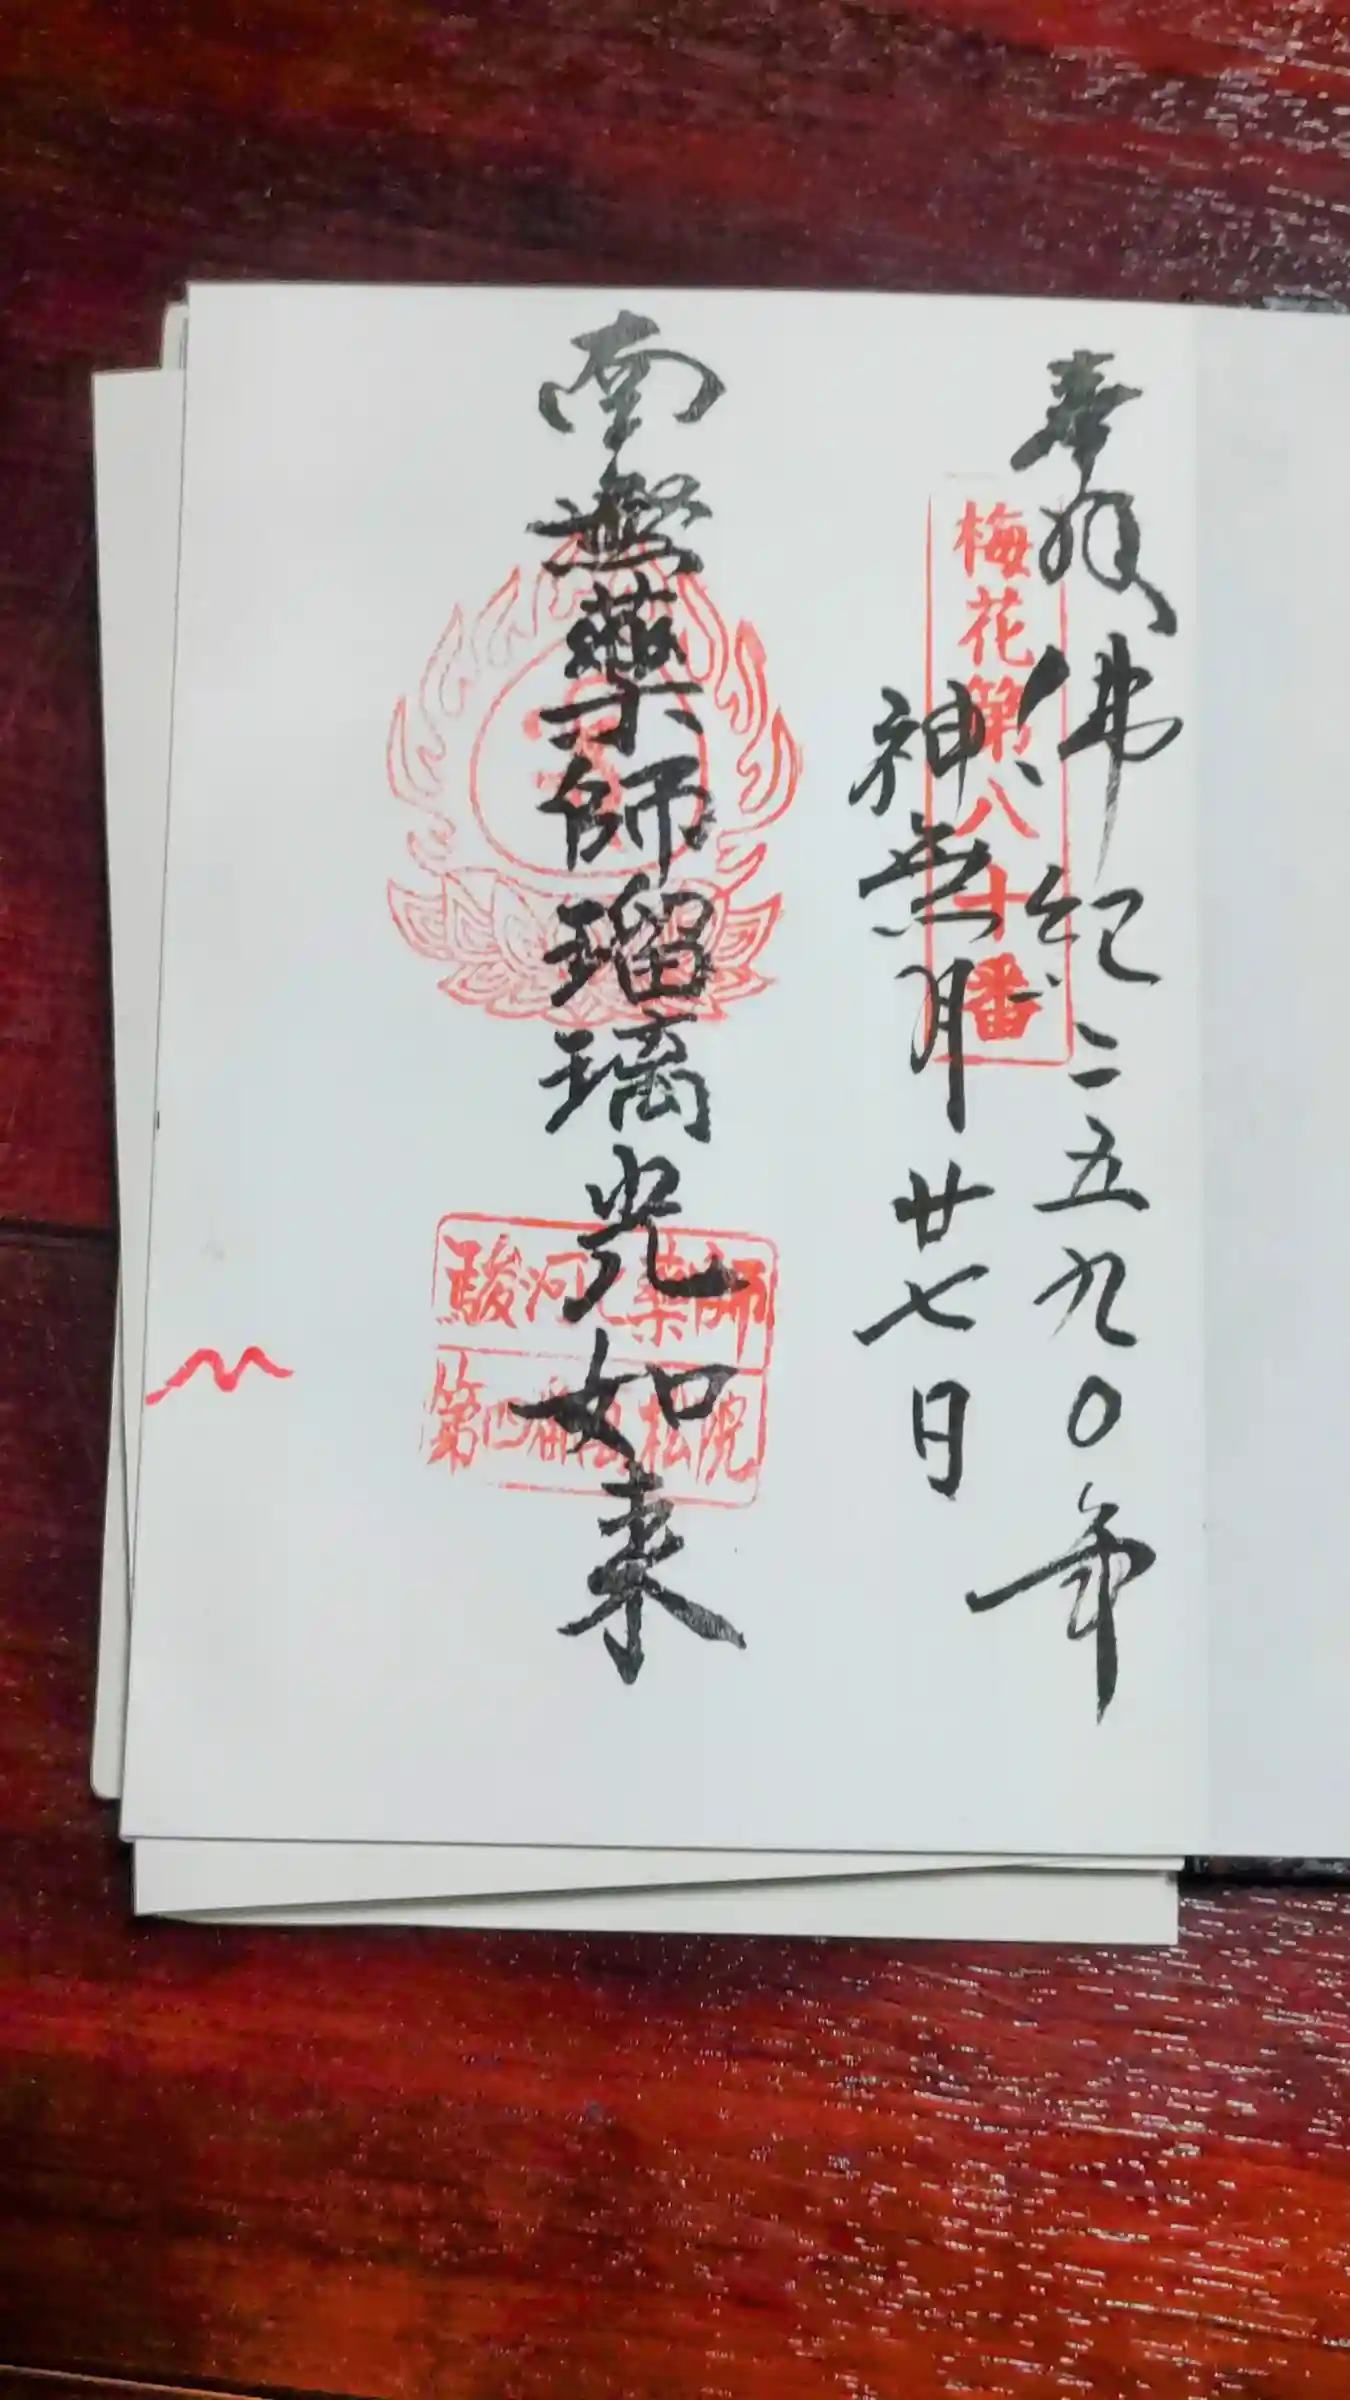 奉拜 佛紀二五九〇年
梅花第八十番
神無月廿七日
南無藥師瑠璃光如来
駿河乃薬師
第四番高松院